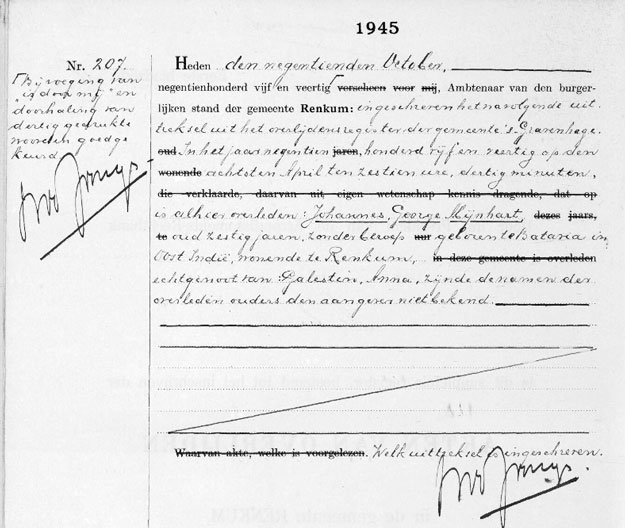 1945
Nr. 207.
Bijvoeging van
"is door mij" en
doorhaling van
dertig gedrukte
woorden goedge
keurd
Heden den negentienden October,
negentienhonderd vijf en veertig verscheen voor mij, Ambtenaar van den burger-
lijken stand der gemeente Renkum: ingeschreven het navolgende uit-
treksel uit het overlijdensregister der gemeente 's-Gravenhage.
oud In het jaar negentien jaren, honderd vijf en veertig op den
wonende achtsten April ten zestien ure, dertig minuten,
die verklaarde, daarvan uit eigen wetenschap kennis dragende, dat op
is alhier overleden: Johannes, George Mijnhart, dezes jaars,
te oud zestig jaren, zonder beroep uur geboren te Batavia in
Oost Indië, wonende te Renkum, in deze gemeente is overleden
echtgenoot van: Palestin, Anna, zijnde de namen der
overleden ouders den aangever niet bekend.
Waarvan akte, welke is voorgelezen. Welk uittreksel is ingeschreven.